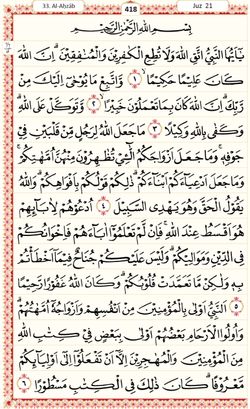 33. Al-Aḥzāb 418 Juz 21
بِسْمِ اللَّهِ الرَّحْمَٰنِ الرَّحِيمِ
يَٰٓأَيُّهَا النَّبِيُّ اتَّقِ اللَّهَ وَلَا تُطِعِ الْكَٰفِرِينَ وَالْمُنَٰفِقِينَ ۗ إِنَّ اللَّهَ
كَانَ عَلِيمًا حَكِيمًا ١ وَاتَّبِعْ مَا يُوحَىٰٓ إِلَيْكَ مِن
رَّبِّكَ ۚ إِنَّ اللَّهَ كَانَ بِمَا تَعْمَلُونَ خَبِيرًا ٢ وَتَوَكَّلْ عَلَى اللَّهِ ۚ
وَكَفَىٰ بِاللَّهِ وَكِيلًا ٣ مَّا جَعَلَ اللَّهُ لِرَجُلٍ مِّن قَلْبَيْنِ فِي
جَوْفِهِ ۚ وَمَا جَعَلَ أَزْوَٰجَكُمُ الَّٰٓـِٔي تُظَٰهِرُونَ مِنْهُنَّ أُمَّهَٰتِكُمْ ۚ
وَمَا جَعَلَ أَدْعِيَآءَكُمْ أَبْنَآءَكُمْ ۚ ذَٰلِكُمْ قَوْلُكُم بِأَفْوَٰهِكُمْ ۖ وَاللَّهُ
يَقُولُ الْحَقَّ وَهُوَ يَهْدِي السَّبِيلَ ٤ ادْعُوهُمْ لِأٓبَآئِهِمْ
هُوَ أَقْسَطُ عِندَ اللَّهِ ۚ فَإِن لَّمْ تَعْلَمُوٓا۟ ءَابَآءَهُمْ فَإِخْوَٰنُكُمْ
فِي الدِّينِ وَمَوَٰلِيكُمْ ۚ وَلَيْسَ عَلَيْكُمْ جُنَاحٌ فِيمَآ أَخْطَأْتُم
بِهِ ۚ وَلَٰكِن مَّا تَعَمَّدَتْ قُلُوبُكُمْ ۚ وَكَانَ اللَّهُ غَفُورًا رَّحِيمًا
٥ النَّبِيُّ أَوْلَىٰ بِالْمُؤْمِنِينَ مِنْ أَنفُسِهِمْ ۖ وَأَزْوَٰجُهُٓ أُمَّهَٰتُهُمْ ۗ
وَأُو۟لُوا۟ الْأَرْحَامِ بَعْضُهُمْ أَوْلَىٰ بِبَعْضٍ فِي كِتَٰبِ اللَّهِ
مِنَ الْمُؤْمِنِينَ وَالْمُهَٰجِرِينَ إِلَّآ أَن تَفْعَلُوٓا۟ إِلَىٰٓ أَوْلِيَآئِكُم
مَّعْرُوفًا ۚ كَانَ ذَٰلِكَ فِي الْكِتَٰبِ مَسْطُورًا ٦